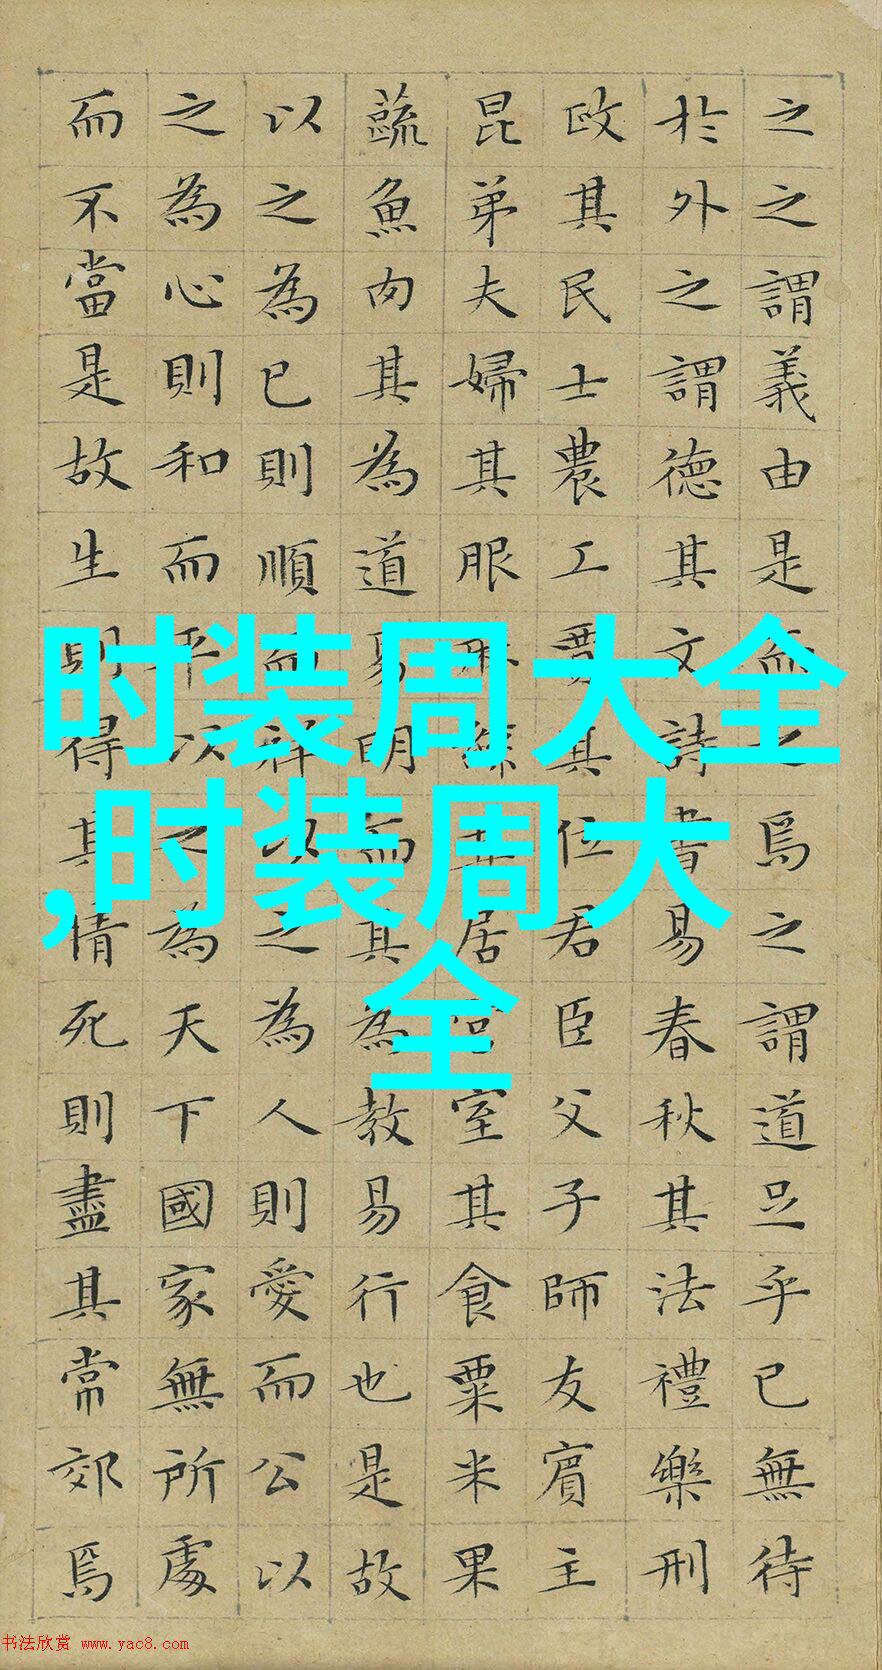 之之謂義由是而之焉之謂道足乎已無待
於外之謂德其文詩書易春秋其法禮樂刑
政其民士農工賈其位君臣父子師友賓主
昆弟夫婦其服麻絲其居宮室其食粟米果
蔬魚肉其為道易明而其為教易行也是故
以之為已則順而祥以之為人則愛而公以
之為心則和而平以之為天下國家無所處
而不當是故生則得其情死則盡其常郊焉
时装周大全
,时装周大
全
书法欣赏 www.yac8.com